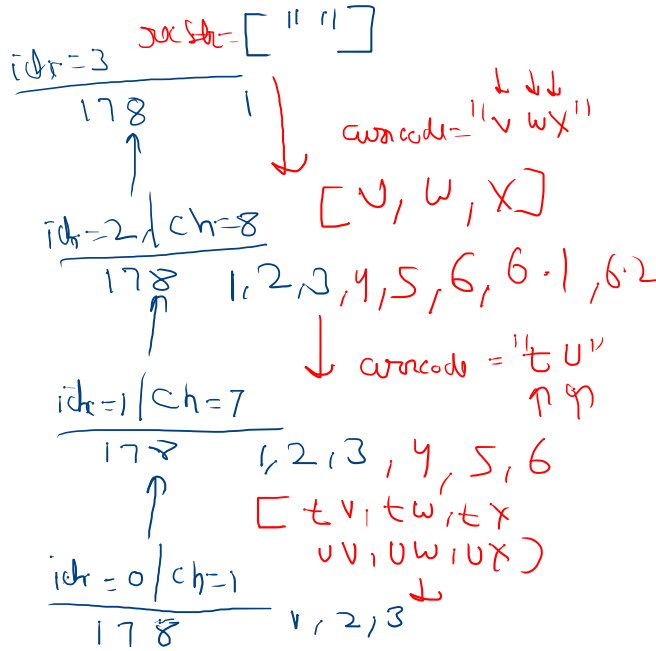 [ " " ]
idx=3
178 1
curr code = "v w x"
[ v, w, x ]
idx=2 / ch=8
178 1, 2, 3, 4, 5, 6, 6.1, 6.2
curr code = "t u"
idx=1 / ch=7
178 1, 2, 3, 4, 5, 6
[ tv, tw, tx
uv, uw, ux ]
idx=0 / ch=1
178 1, 2, 3